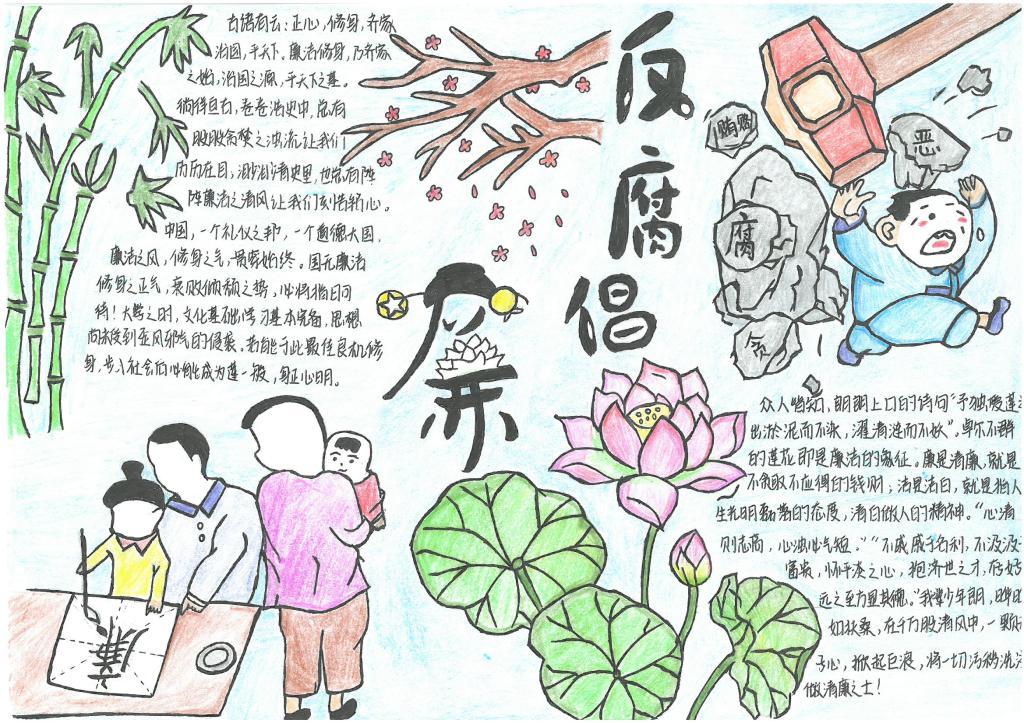 古语有云：正心，修身，齐家
治国，平天下。廉洁修身，乃齐家
之始，治国之源，平天下之基。
徜徉自古，卷卷浩史中，总有
股股贪婪之浊流让我们
历历在目，汩汩清史里，也总有阵
阵廉洁之清风让我们刻骨铭心。
中国，一个礼仪之邦，一个道德大国，
廉洁之风，修身之气，贯穿始终。国无廉洁
修身之正气，衰败倾颓之势，必将指日可
待！大学之时，文化基础学习基本完备，思想
尚未受到歪风邪气的侵袭。若能于此最佳良机修
身，步入社会后必能成为莲一般，身正心明。
反腐倡
廉
贿赂
恶
腐
贪
众人皆知，朗朗上口的诗句“予独爱莲之
出淤泥而不染，濯清涟而不妖”。卓尔不群
的莲花即是廉洁的象征。廉是清廉，就是
不贪取不应得的钱财；洁是洁白，就是指人
生光明磊落的态度，清白做人的精神。“心清
则志高，心浊则气短。”“不戚戚于名利，不汲汲
富贵，怀平淡之心，抱济世之才，存
远之至方显其德。”我辈少年朗，
如扶桑，在千万股清风中，一颗
予心，掀起巨浪，将一切污秽洗
做清廉之士！
廉